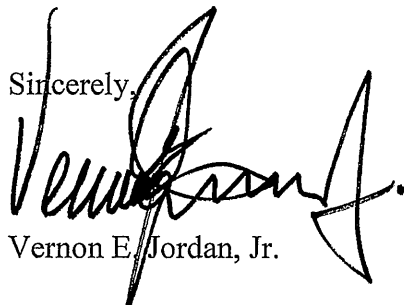 Sincerely,
Vernon E. Jordan, Jr.